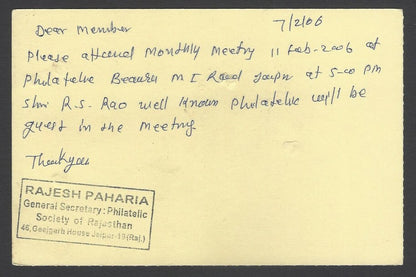 7/2/06
Dear Member
Please attend Monthly Meeting 11 Feb-2006 at
Philatelic Beaurau M I Road Jaipur at 5-00 PM
Shri R.S. Rao well known philatelic will be
guest in the meeting
Thankyou
RAJESH PAHARIA
General Secretary: Philatelic
Society of Rajasthan
46, Geejgarh House Jaipur-19 (Raj.)